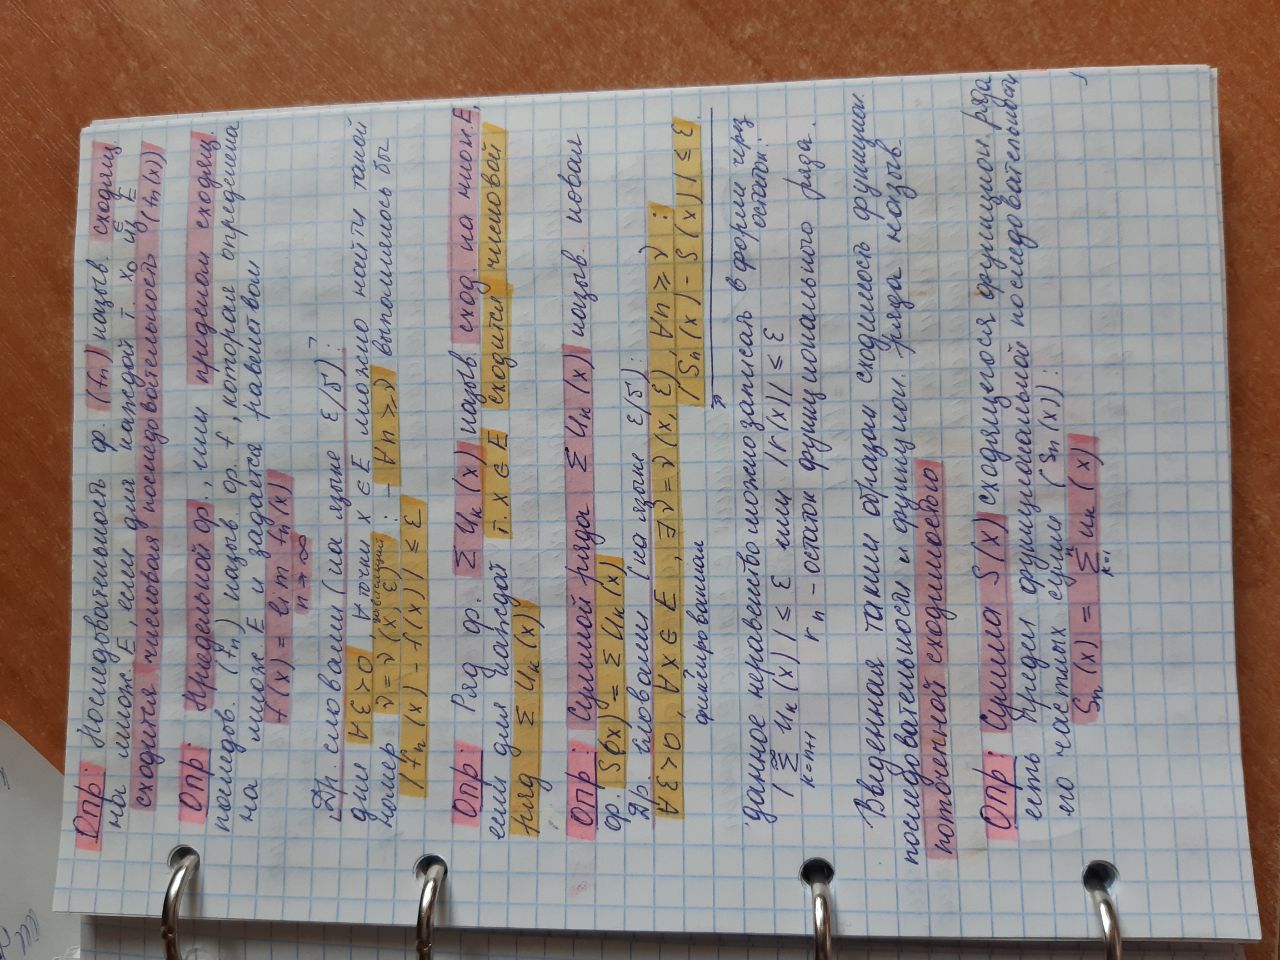 Опр: Последовательность ф. (fn) назыв. сходящ
на множ. E, если для каждой т. x₀ из E
∈
сходится числовая последовательность (fn(x))
Опр: Предельной ф., или пределом сходящ.
последов. (fn) назыв ф. f, которая определена
на множ. E и задаётся равенством
f(x) = lim fn(x)
n→∞
Др. словами (на языке ε/δ):
для ∀ε>0, ∀ точки x ∈ E можно найти такой
зависящий
номер ν = ν(x, ε) : - ∀n ≥ ν выполнялось бы
|fn(x) - f(x)| ≤ ε
Опр: Ряд ф. Σ Uк(x) назыв. сход. на множ. E,
если для каждой т. x ∈ E сходится числовой
ряд Σ Uк(x)
Опр: Суммой ряда Σ Uк(x) назыв. новая
ф. S(x) = Σ Uк(x)
Др. словами (на языке ε/δ):
∀ε>0, ∀x ∈ E, ∃ν = ν(x, ε), ∀n ≥ ν :
фиксированная |Sn(x) - S(x)| ≤ ε.
данное неравенство можно записать в форме через
остаток:
|∞Σк=n+1 Uк(x)| ≤ ε или |r(x)| ≤ ε
rn – остаток функционального ряда.
Введенная таким образом сходимость функцион.
последовательности и функцион. ряда назыв.
поточечной сходимостью
Опр: Сумма S(x) сходящегося функцион. ряда
есть предел функциональной последовательности
его частных сумм (Sn(x)):
Sn(x) = nΣк=1 uк(x)